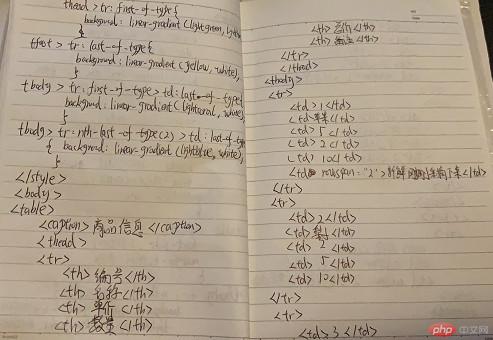 thead > tr: first-of-type {
background: linear-gradient (lightgreen,
}
tfoot > tr: last-of-type {
background: linear-gradient (yellow, white),
}
tbody > tr: first-of-type > td: last-of-type
background: linear-gradient (lightcoral, white),
}
tbody > tr: nth-last-of-type(2) > td: last-of
{ background: linear-gradient (lightblue, white),
}
</style>
<body>
<table>
<caption> 商品信息 </caption>
<thead>
<tr>
<th> 编号 </th>
<th> 名称 </th>
<th> 单价 </th>
<th> 数量 </th>
<th> </th>
<th> </th>
</tr>
</thead>
<tbody>
<tr>
<td> 1 </td>
<td> 苹果 </td>
<td> 5 </td>
<td> 2 </td>
<td> 10 </td>
<td rowspan="2"> </td>
</tr>
<tr>
<td> 2 </td>
<td> </td>
<td> 2 </td>
<td> 5 </td>
<td> 10 </td>
</tr>
<tr>
<td> 3 </td>
php 中文网